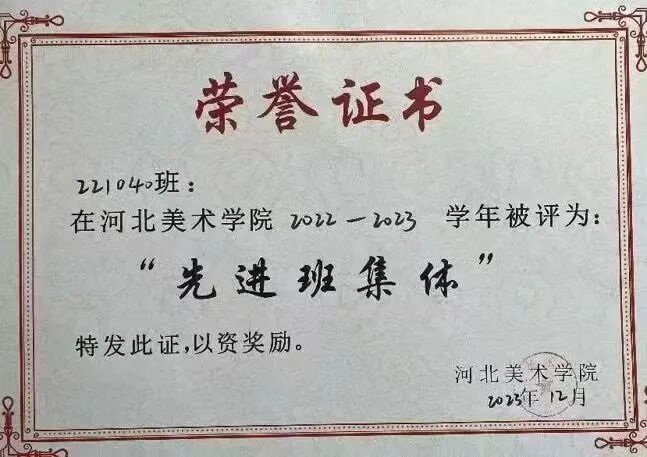 荣誉证书
221040班：
在河北美术学院 2022—2023 学年被评为：
“先进班集体”
特发此证，以资奖励。
河北美术学院
2023年12月